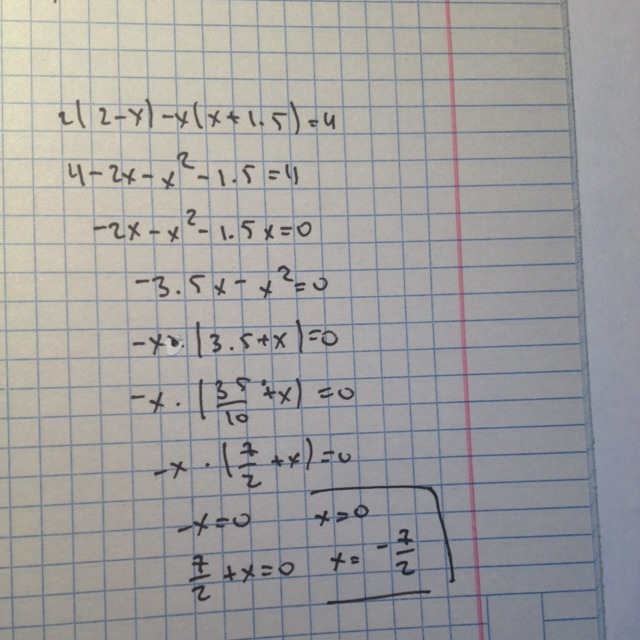 2(2-x)-x(x+1.5)=4
4-2x-x²-1.5=4
-2x-x²-1.5x=0
-3.5x-x²=0
-x·(3.5+x)=0
-x·(35/10+x)=0
-x·(7/2+x)=0
-x=0 x=0
7/2+x=0 x=-7/2